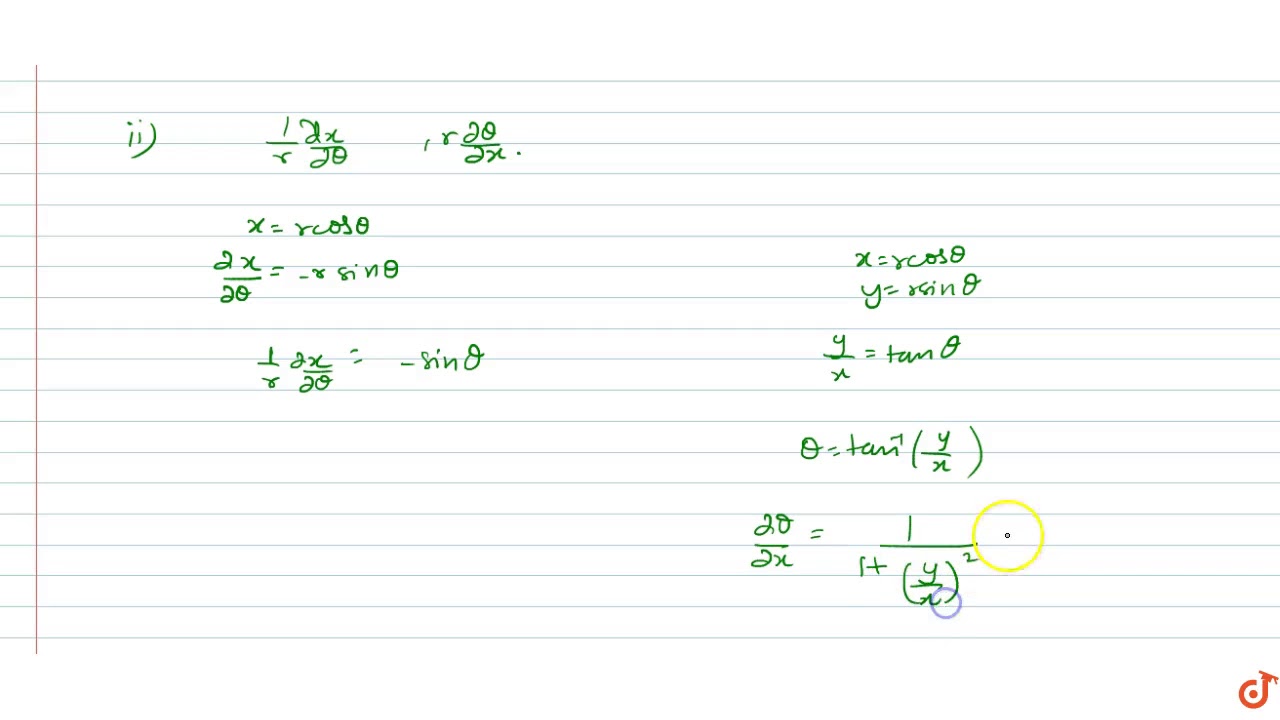 ii) 1/r ∂x/∂θ , r ∂θ/∂x .
x = r cosθ
∂x/∂θ = -r sinθ
1/r ∂x/∂θ = -sinθ
x = r cosθ
y = r sinθ
y/x = tanθ
θ = tan⁻¹(y/x)
∂θ/∂x = 1/(1+(y/x)²) .